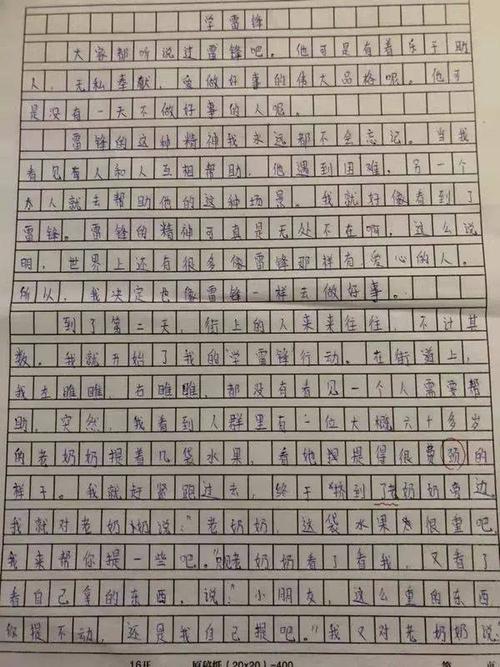 学雷锋
大家都听说过雷锋吧。他可是有着乐于助
人,无私奉献,爱做好事的伟大品格呢。他可
是没有一天不做好事的人呢。
雷锋的这种精神我永远都不会忘记。当我
看见有人和人互相帮助,他遇到困难,另一个
人就去帮助他的这种场景。我就好像看到了
雷锋。雷锋的精神可真是无处不在啊。这么说
明,世界上还有很多像雷锋那样有爱心的人。
所以,我决定也像雷锋一样去做好事。
到了第二天,街上的人来来往往,不计其
数。我就开始了我的“学雷锋行动。在街道上,
我左瞧瞧,右瞧瞧,都没有看见一个人需要帮
助,突然,我看到人群里有一位大概六十多岁
的老奶奶提着几袋水果,看她提得很费颈的
样子。我就赶紧跑过去,终于“挤到了老奶奶旁边
我就对老奶奶说:“老奶奶,这袋水果很重吧。
我来帮你提一些吧。”老奶奶看了看我,又看了
看自己拿的东西,说:“小朋友,这么重的东西
你提不动,还是我自己提吧。”我又对老奶奶说
16开 原稿纸(20×20)=400 第 页